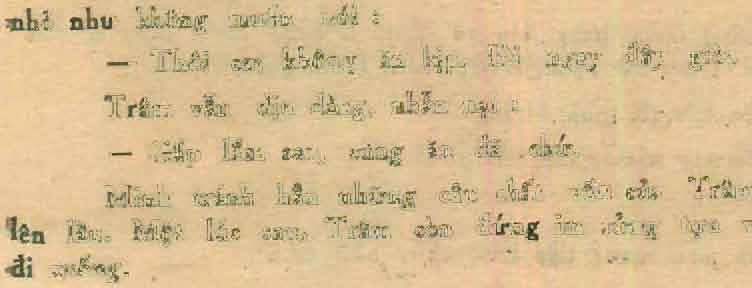 nhỏ như không muốn nói :
— Thôi em không ăn kịp. Đi ngay đây
Trâm vẫn dịu dàng, nhẫn nại :
— lắm sao, cũng ăn đã chứ.
Mãnh tránh hẳn những câu chất vấn của Trâm
lên lầu. Một lúc sau, Trâm còn đứng im
đi xuống.